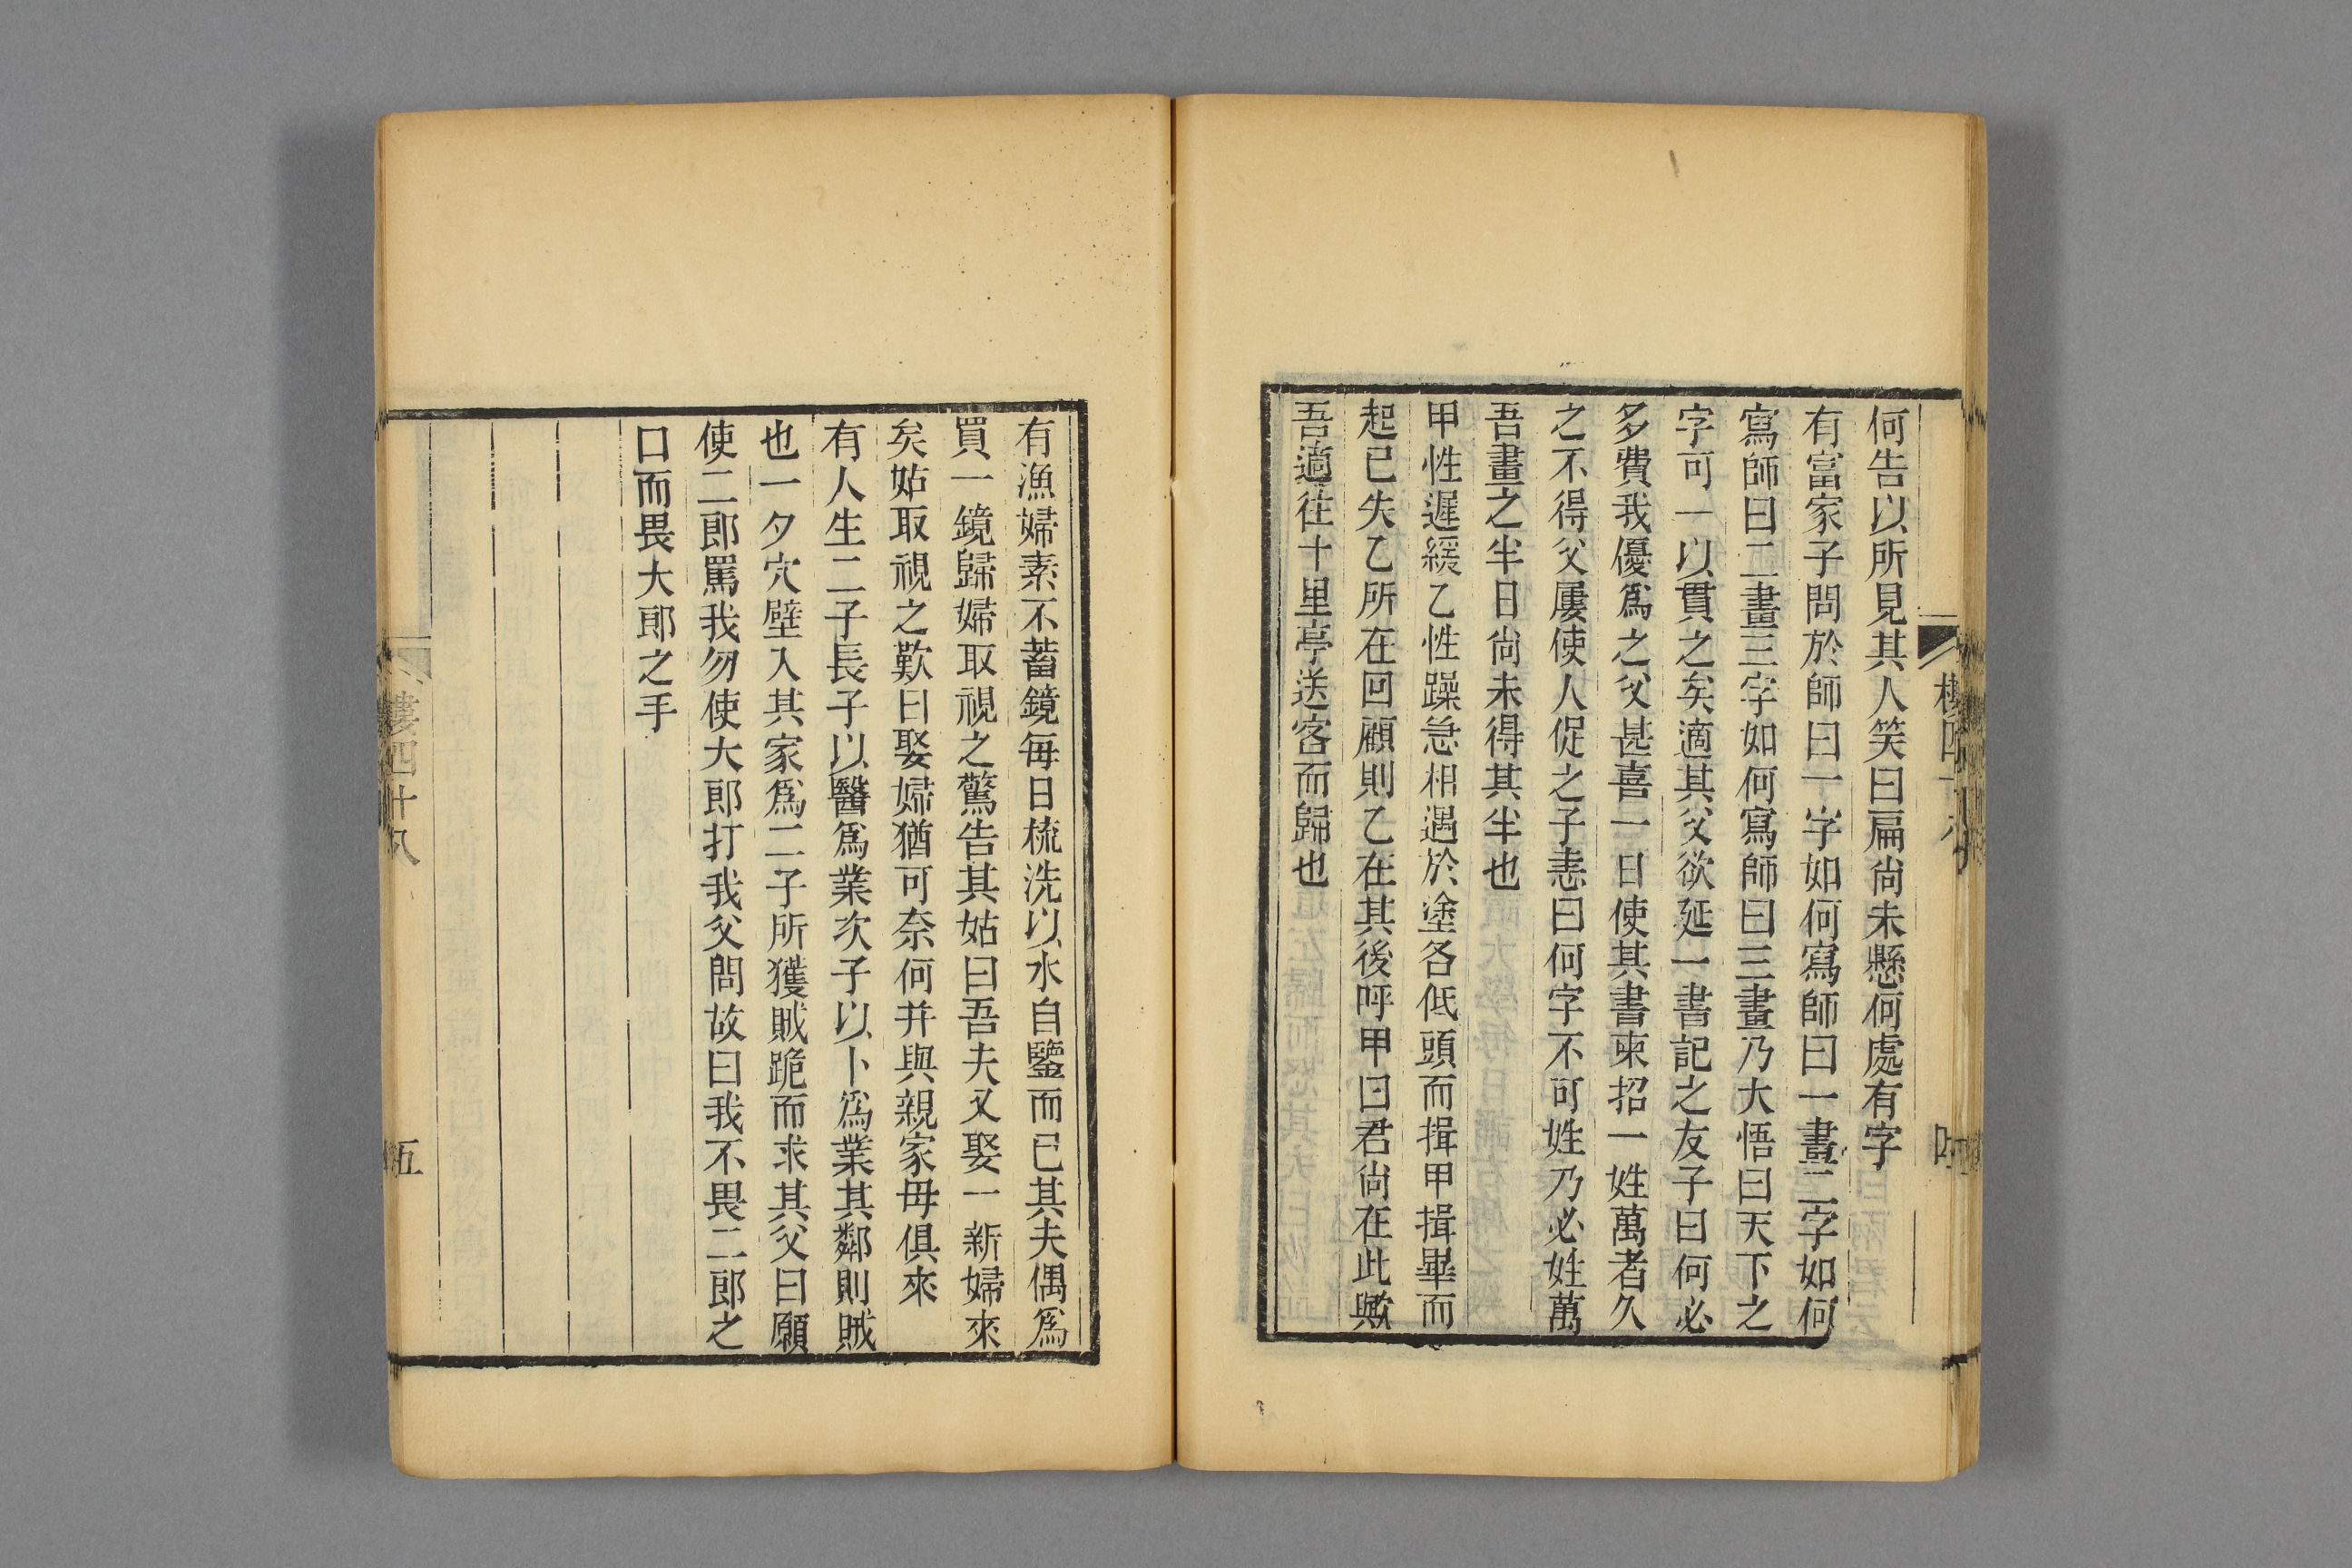 何告以所見其人笑曰扁尙未懸何處有字
有富家子問於師曰一字如何寫師曰一畫二字如何
寫師曰二畫三字如何寫師曰三畫乃大悟曰天下之
字可一以貫之矣適其父欲延一書記之友子曰何必
多費我優爲之父甚喜一日使其書柬招一姓萬者久
之不得父屢使人促之子恚曰何字不可姓乃必姓萬
吾畫之半日尙未得其半也
甲性遲緩乙性躁急相遇於塗各低頭而揖甲揖畢而
起已失乙所在回顧則乙在其後呼甲曰君尙在此歟
吾適往十里亭送客而歸也
有漁婦素不蓄鏡每日梳洗以水自鑒而已其夫偶爲
買一鏡歸婦取視之驚告其姑曰吾夫又娶一新婦來
矣姑取視之歎曰娶婦猶可奈何并與親家毋俱來
有人生二子長子以醫爲業次子以卜爲業其鄰則賊
也一夕穴壁入其家爲二子所獲賊跪而求其父曰願
使二郎罵我勿使大郎打我父問故曰我不畏二郎之
口而畏大郎之手
樓四十八
五